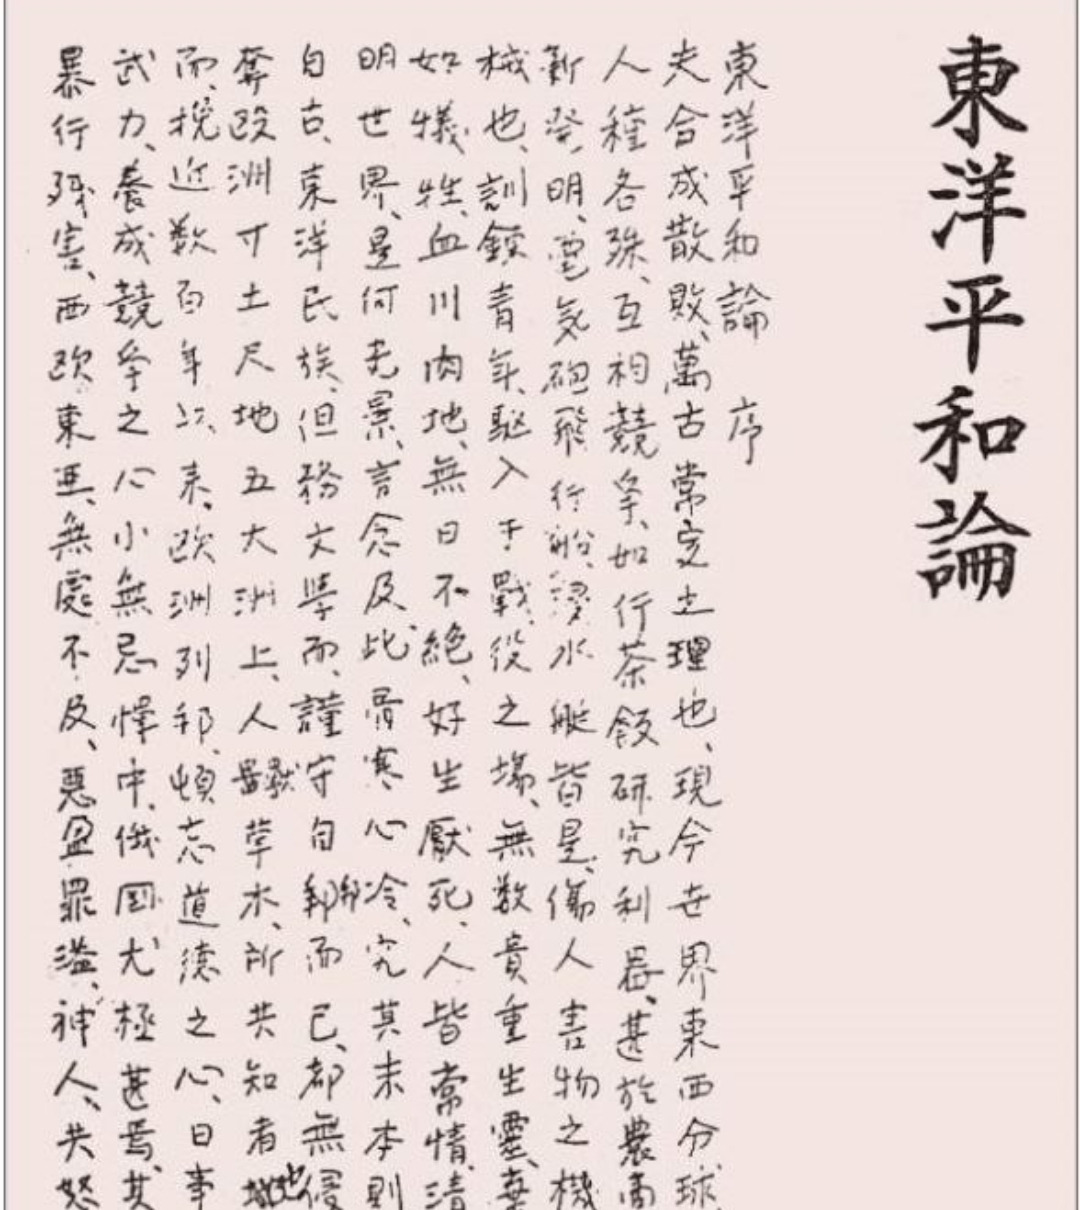 東洋平和論
東洋平和論 序
夫合成散敗、萬古常定之理也、現今世界東西分球
人種各殊、互相競爭、如行茶飯研究利器、甚於農商
新發明、電気砲飛行船浸水艇皆是、傷人害物之機
械也、訓鍊青年、駆入于戰役之場、無数貴重生靈、棄
如犧牲、血川肉地、無日不絶、好生厭死、人皆常情、清
明世界、是何光景、言念及此、骨寒心冷、究其末本則
自古、東洋民族、但務文學而、謹守自邦而已、都無侵
奪欧洲寸土尺地五大洲上、人獸草木、所共知者也
而、挽近數百年以来、欧洲列邦、頓忘道德之心、日事
武力、養成競爭之心小無忌憚中、俄国尤極甚焉、其
暴行残害、西欧東亜、無處不及、惡盈罪溢、神人、共怒